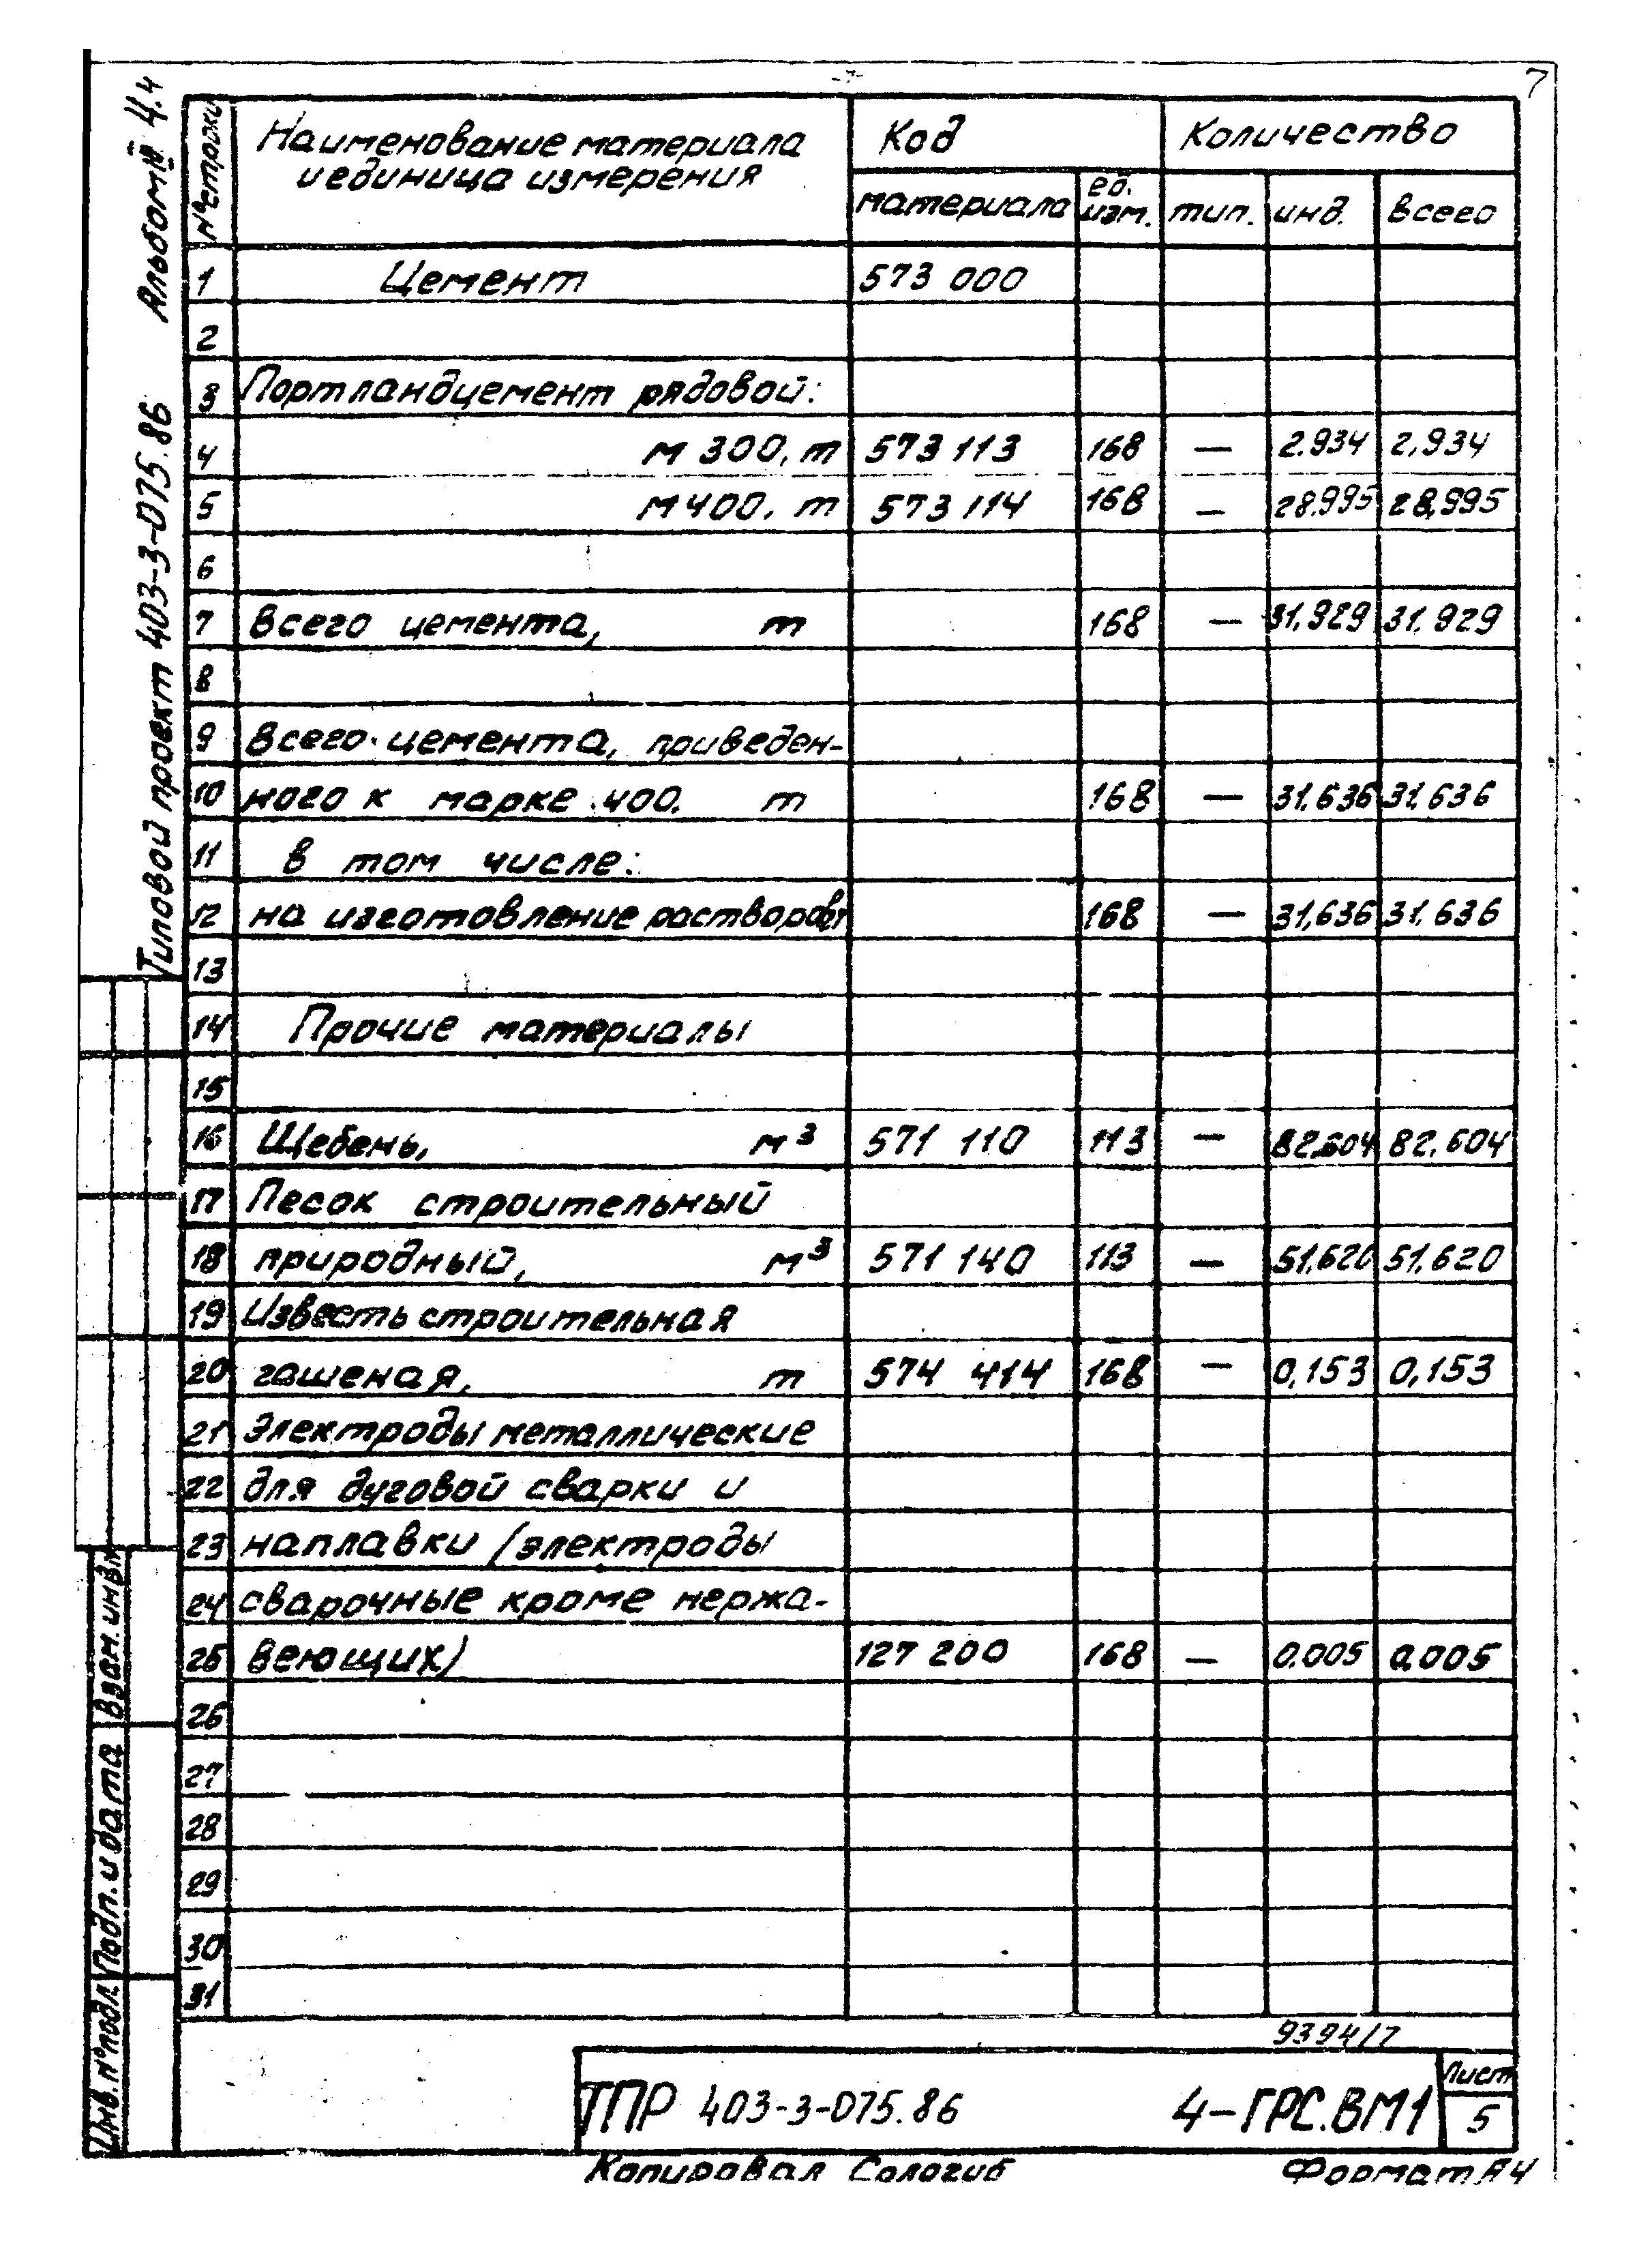 -7-
7
Альбом 4.4
Типовой проект 403-3-075.86
№ строки
Наименование материала
и единица измерения
Код
Количество
материала
ед.
изм.
тип.
инд.
всего
1 Цемент 573 000
2
3 Портландцемент рядовой:
4 М 300, т 573 113 168 — 2.934 2,934
5 М 400, т 573 114 168 — 28.995 28,995
6
7 Всего цемента, т 168 — 31.929 31.929
8
9 Всего цемента, приведен-
10 ного к марке 400, т 168 — 31.636 31.636
11 в том числе:
12 на изготовление растворов,т 168 — 31,636 31.636
13
14 Прочие материалы
15
16 Щебень, м³ 571 110 113 — 82.604 82.604
17 Песок строительный
18 природный, м³ 571 140 113 — 51.620 51.620
19 Известь строительная
20 гашеная, т 574 414 168 — 0,153 0,153
21 Электроды металлические
22 для дуговой сварки и
23 наплавки /электроды
24 сварочные кроме нержа-
25 веющих) 127 200 168 — 0.005 0.005
26
27
28
29
30
31
Взам. инв.№
Подп. и дата
Инв. № подл.
9394/7
ТПР 403-3-075.86 4-ГРС.ВМ1
Лист
5
Копировал
Формат А4